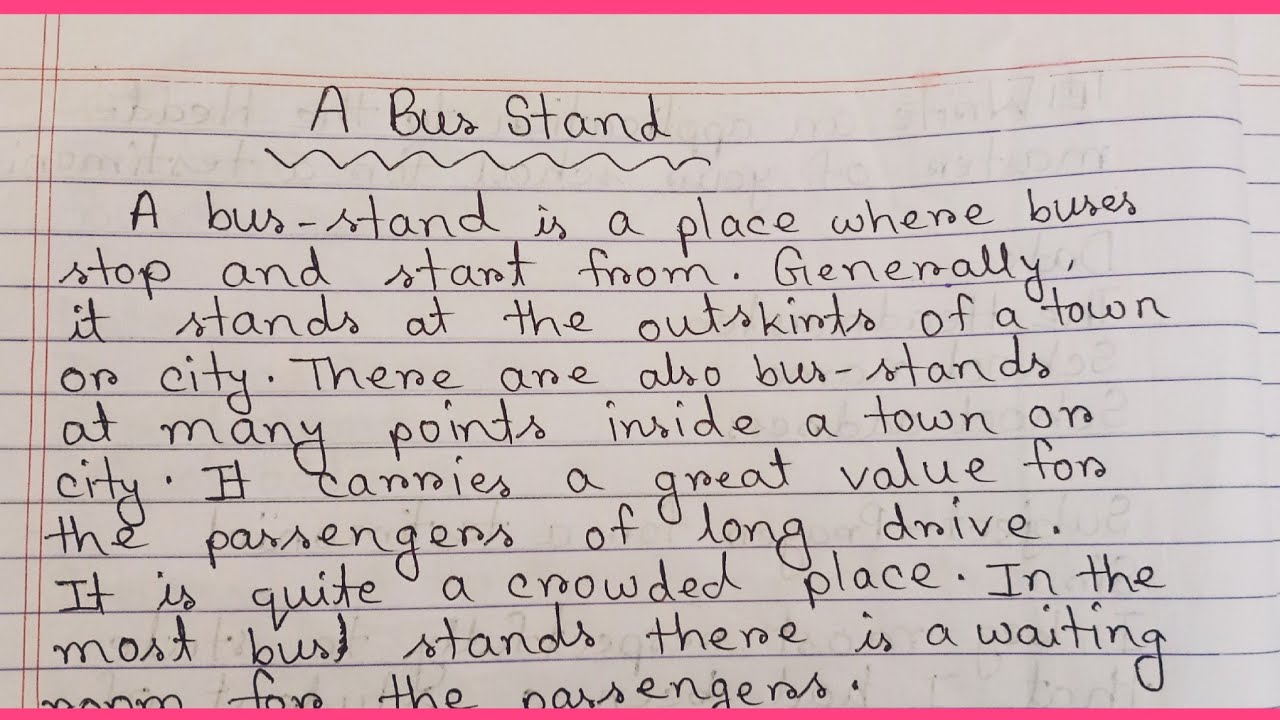 A Bus Stand
A bus-stand is a place where buses
stop and start from. Generally,
it stands at the outskirts of a town
or city. There are also bus-stands
at many points inside a town or
city. It carries a great value for
the passengers of long drive.
It is quite a crowded place. In the
most bus stands there is a waiting
room for the passengers.